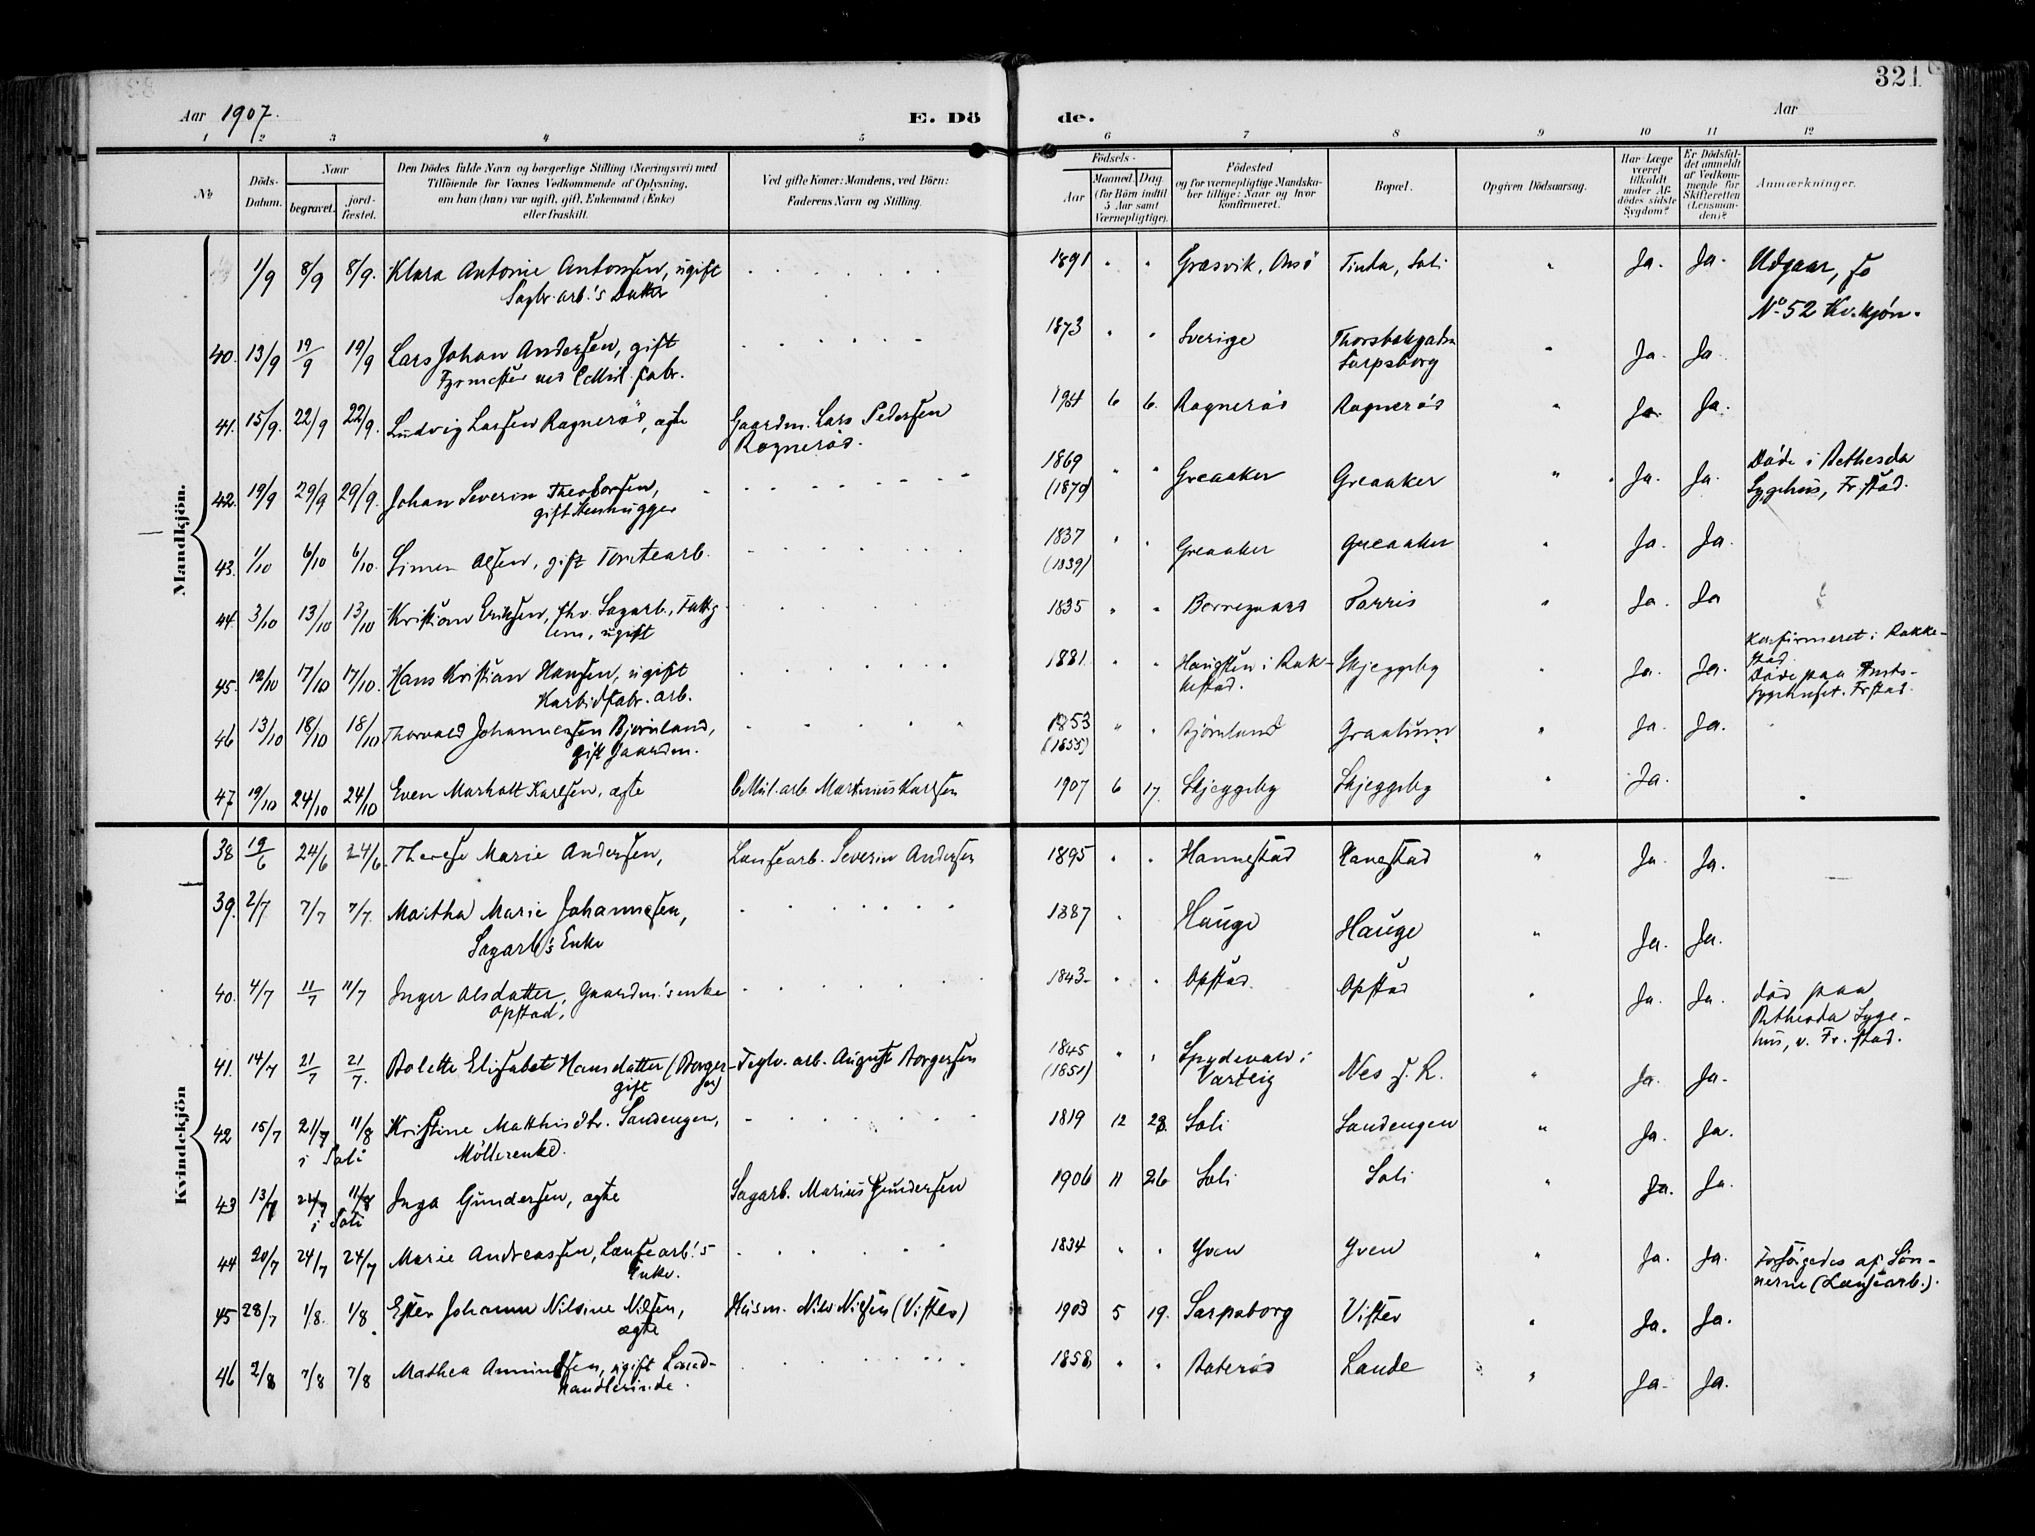 321
Aar 1907. E. Dö de. Aar
1 2 3 4 5 6 7 8 9 10 11 12
No
Döds-Datum.
Naar
begravet.
jord-fæstet.
Den Dödes fulde Navn og borgerlige Stilling (Næringsvei) med
Tilföiende for Voxnes Vedkommende af Oplysning,
om hun (han) var ugift, gift, Enkemand (Enke)
eller fraskilt.
Ved gifte Koner: Mandens, ved Börn:
Faderens Navn og Stilling.
Födsels-
Aar
Maaned. Dag
(for Börn indtil
5 Aar samt
Værnepligtige).
Födested
og for værnepligtige Mandska-
ber tillige: Naar og hvor
konfirmeret.
Bopæl.
Opgiven Dödsaarsag.
Har Læge
været
tilkaldt
under Af-
dödes sidste
Sygdom?
Er Dödsfal-
det anmeldt
af Vedkom-
mende for
Skifteretten
(Lensman-
den)?
Anmærkninger.
Mandkjön.
1/9 8/9 8/9. Klara Antonie Antonsen, ugift 1891 " " Græsvik, Onsö Tinda, Soli " Ja. Ja. Udgaar, se
Sagbr. arb.'s Datter No 52 Kv.kjøn.
40. 13/9 19/9 19/9 Lars Johan Andersen, gift 1873 " " Sverige Thorsbakgaden " Ja. Ja
Fyrmester ved Cellul. fabr. Sarpsborg
41. 15/9. 22/9 22/9. Ludvig Larsen Ragnerød, ægte Gaardm. Lars Pedersen 1904 6 6. Ragnerød Ragnerød " Ja. Ja.
Ragnerød.
42. 19/9 29/9 29/9. Johan Severin Theodorsen, 1869 " " Greaaker Greaaker " Ja. Ja. Døde i Bethesda
gift Stenhugger (1870) Sygehus, Fr.stad.
43. 1/10 6/10 6/10. Simen Olsen, gift Tomtearb. 1837 " " Greaaker Greaaker " Ja. Ja.
(1839)
44. 3/10 13/10 13/10 Kristian Eriksen, fhv. Sagarb., Fattig- 1835 " " Borregaard Torris " Ja. Ja
lem, ugift
45. 12/10 17/10 17/10. Hans Kristian Hansen, ugift 1881 " " Haugsten i Rak- Skjeggeby " Ja. Ja. Konfirmeret i Rakke-
Karbidfabr. arb. kestad. stad.
Døde paa Amts-
sygehuset. Fr.stad.
46 13/10 18/10 18/10 Thorvald Johannessen Bjørnland, 1853 " " Bjørnland Graatium " Ja. Ja.
gift Gaardm. (1855)
47 19/10 24/10 24/10 Even Marhatt Karlsen, ægte Cellul. arb. Martinius Karlsen 1907 6 17. Skjeggeby Skjeggeby " Ja.
Kvindekjön
38 19/6 24/6 24/6. Therese Marie Andersen, Landsearb. Severin Andersen 1895 " " Hannestad Hannestad " Ja. Ja.
39. 2/7 7/7 7/7. Martha Marie Johannesen, 1887 " Hauge Hauge " Ja. Ja.
Sagarb's Enke
40. 4/7 11/7 11/7 Inger Olsdatter, Gaardm.'s enke 1843. " " Opstad. Opstad " Ja. Ja. død paa
Opstad. Bethesda Syge-
hus, v. Fr.stad.
41. 14/7 21/7 21/7. Bolette Elisabet Hansdatter (Borger- Teglv. arb. August Borgersen 1845 " " Spydevold i Nes j. R. " Ja. Ja.
gift sen) (1851) Varteig
42 15/7 21/7 11/8 Kristine Matthisdtr. Sandengen, 1819 12 28. Soli Sandengen " Ja. Ja.
i Soli Møllerenke.
43 13/7 21/7 11/8 Inga Gundersen, ægte Sagarb. Marius Gundersen 1906 11 26 Soli Soli " Ja. Ja.
i Soli
44 20/7 24/7 24/7 Marie Andreassen, Landsearb.'s 1834 " " Yven Yven " Ja. Ja. Forsørgedes af Søn-
Enke. nerne (Landsearb.).
45 28/7 1/8. 1/8 Ester Johanne Nilsine Nilsen, Husm. Nils Nilsen (Vister) 1903 5 19. Sarpsborg Vister " Ja. Ja.
ægte
46 2/8 7/8 7/8 Mathea Amundsen, ugift Land- 1858 " " Baterød Lande " Ja. Ja.
handlerinde.